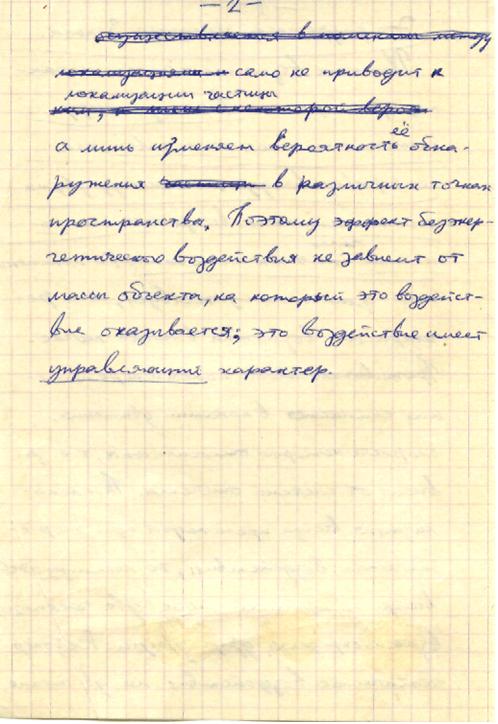 — 2 —
осуществляется в помощи между
локализации и само не приводит к
локализации частицы
а лишь изменяет вероятность её обна-
ружения частицы в различных точках
пространства. Поэтому эффект безэнер-
гетического воздействия не зависит от
массы объекта, на который это воздейст-
вие оказывается; это воздействие имеет
управляющий характер.